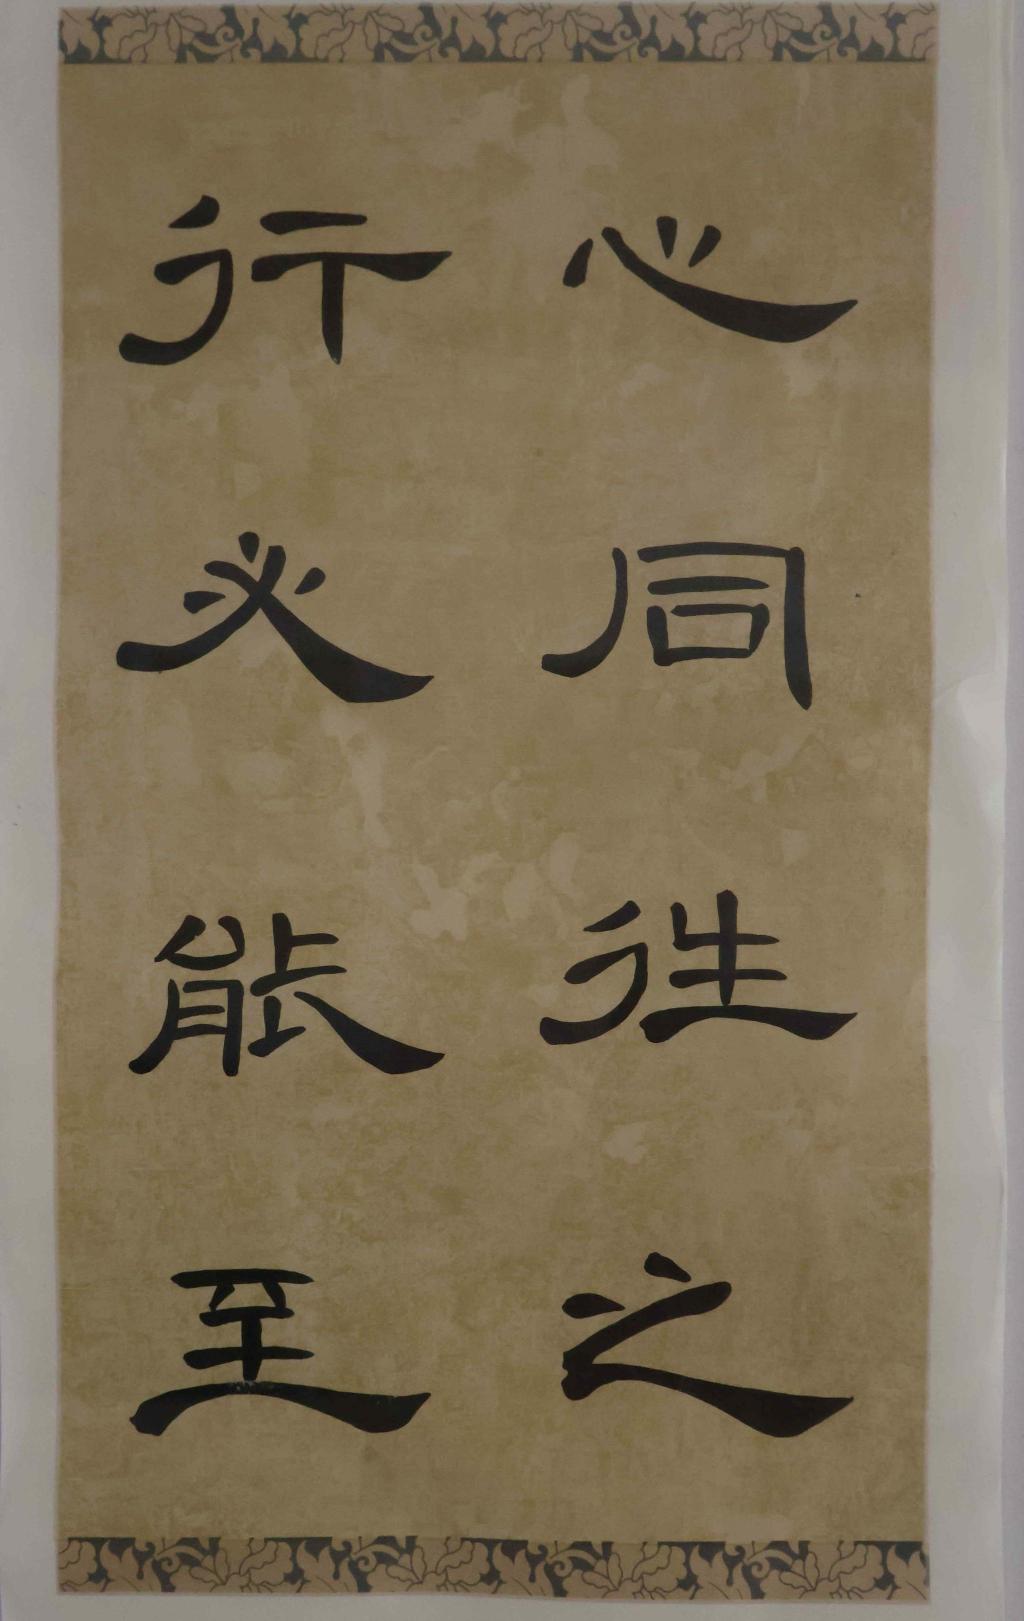 心同往之
行必能至